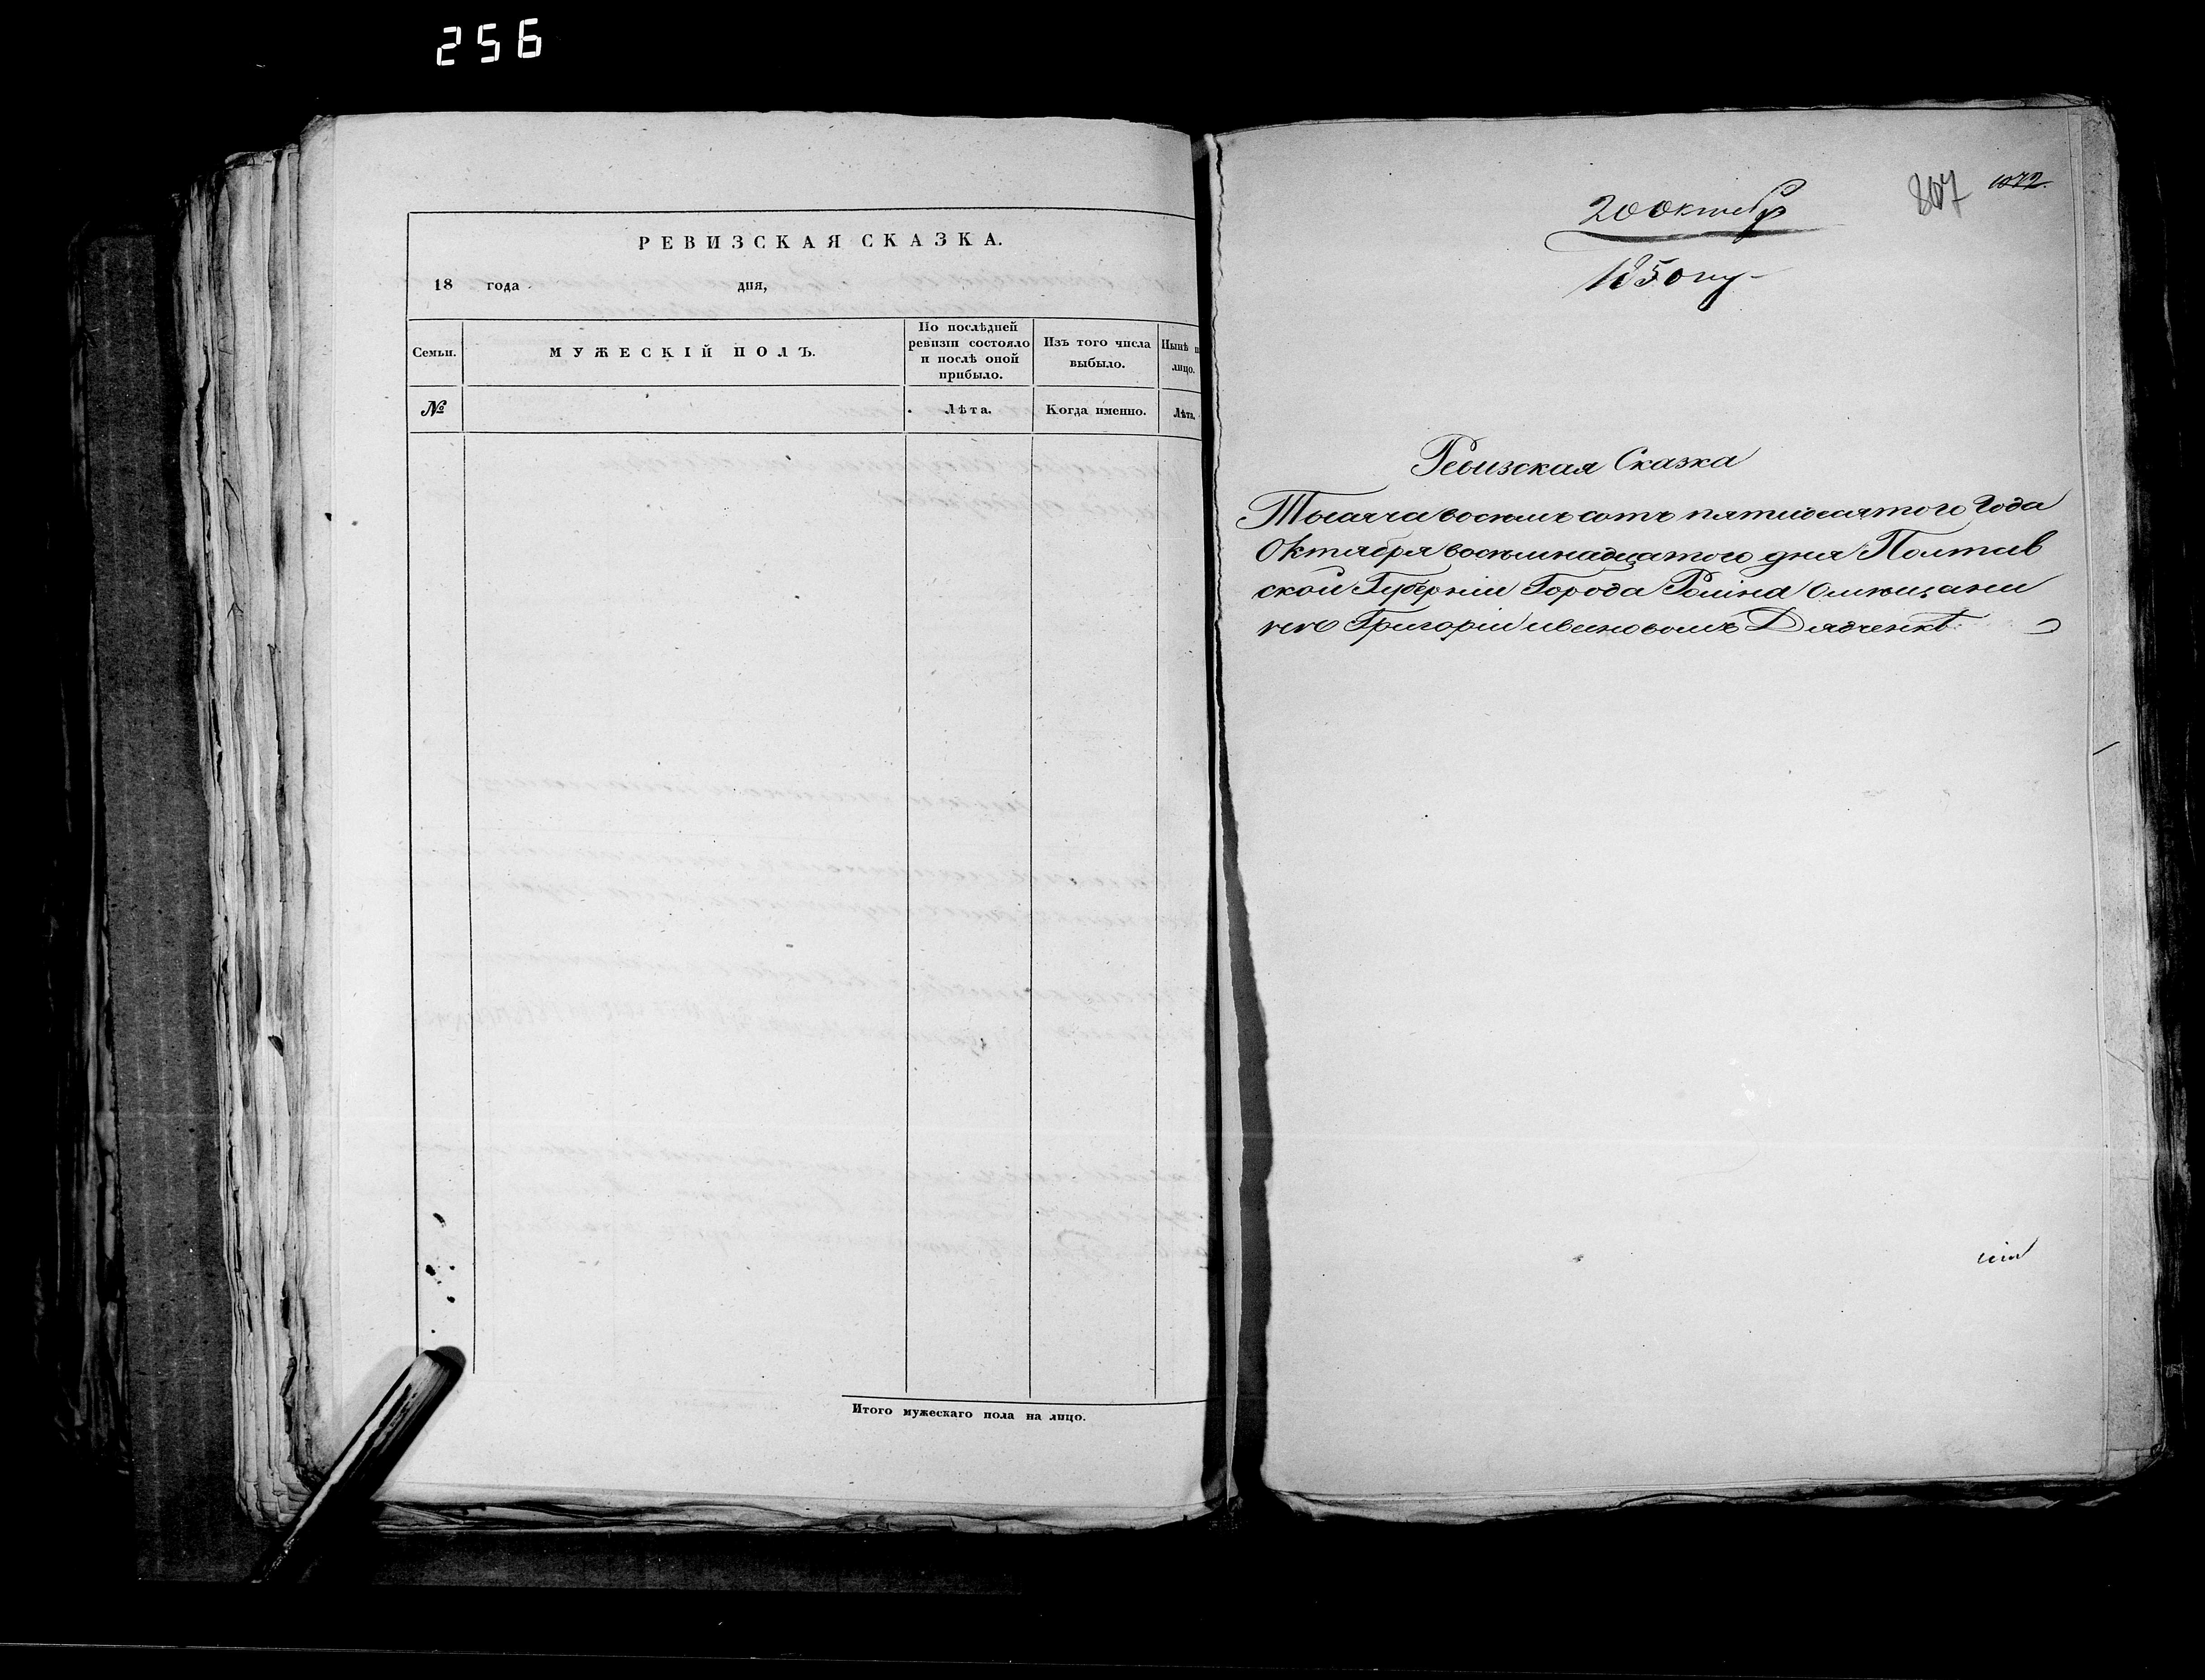 256
РЕВИЗСКАЯ СКАЗКА.
18 года дня,
Семьи.
МУЖЕСКІЙ ПОЛЪ.
По послѣдней
ревизіи состояло
и послѣ оной
прибыло.
Изъ того числа
выбыло.
Нынѣ н
лицо.
№
Лѣта.
Когда именно.
Лѣта.
Итого мужескаго пола на лицо.
20 октябр
1850 г
807
1072.
Ревизская Сказка
Тысяча восемь сотъ пятидесятого Года
Октября восемнадцатого дня Полтав
ской Губерніи Города Ромна О мещани
не Григоріи Ивановомъ Дядченкѣ